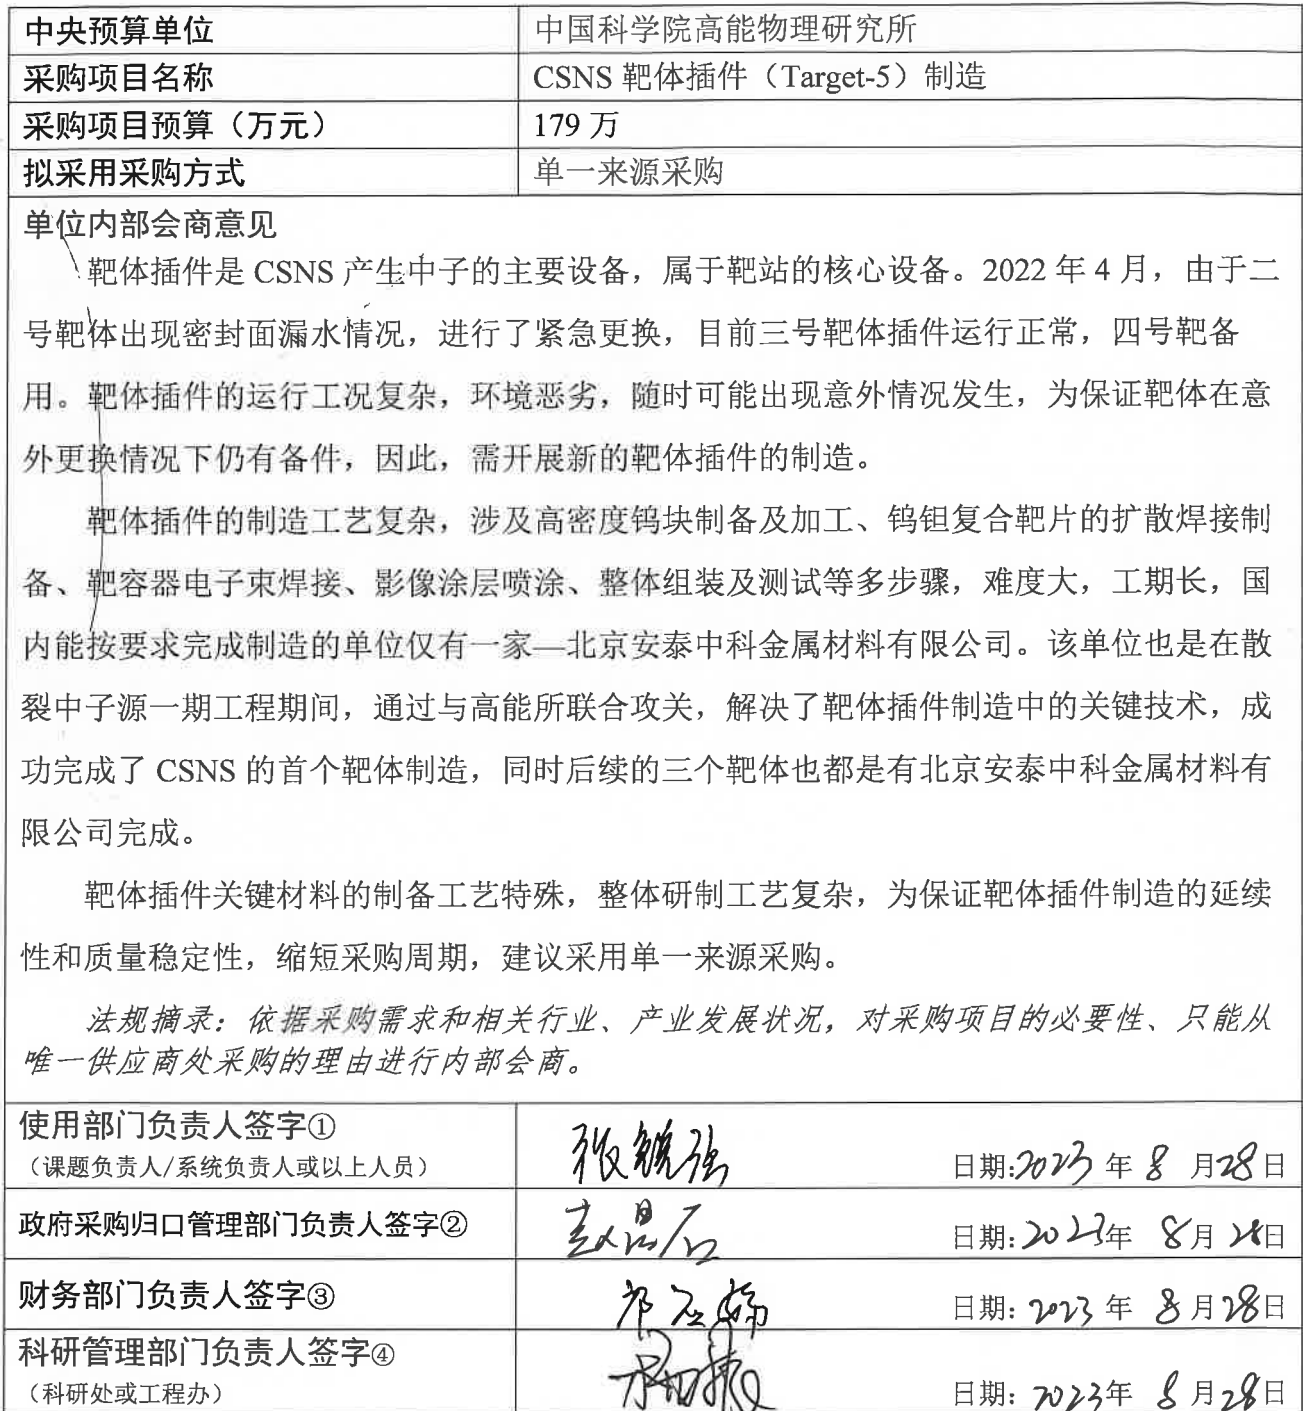 中央预算单位 中国科学院高能物理研究所
采购项目名称 CSNS 靶体插件（Target-5）制造
采购项目预算（万元） 179 万
拟采用采购方式 单一来源采购
单位内部会商意见
靶体插件是 CSNS 产生中子的主要设备，属于靶站的核心设备。2022 年 4 月，由于二
号靶体出现密封面漏水情况，进行了紧急更换，目前三号靶体插件运行正常，四号靶备
用。靶体插件的运行工况复杂，环境恶劣，随时可能出现意外情况发生，为保证靶体在意
外更换情况下仍有备件，因此，需开展新的靶体插件的制造。
靶体插件的制造工艺复杂，涉及高密度钨块制备及加工、钨钽复合靶片的扩散焊接制
备、靶容器电子束焊接、影像涂层喷涂、整体组装及测试等多步骤，难度大，工期长，国
内能按要求完成制造的单位仅有一家—北京安泰中科金属材料有限公司。该单位也是在散
裂中子源一期工程期间，通过与高能所联合攻关，解决了靶体插件制造中的关键技术，成
功完成了 CSNS 的首个靶体制造，同时后续的三个靶体也都是有北京安泰中科金属材料有
限公司完成。
靶体插件关键材料的制备工艺特殊，整体研制工艺复杂，为保证靶体插件制造的延续
性和质量稳定性，缩短采购周期，建议采用单一来源采购。
法规摘录：依据采购需求和相关行业、产业发展状况，对采购项目的必要性、只能从
唯一供应商处采购的理由进行内部会商。
使用部门负责人签字①
（课题负责人/系统负责人或以上人员） 张锐强 日期:2023 年 8 月28日
政府采购归口管理部门负责人签字② 日期:2023年 8月28日
财务部门负责人签字③ 日期: 2023 年 8月28日
科研管理部门负责人签字④
（科研处或工程办） 日期: 2023年 8月28日